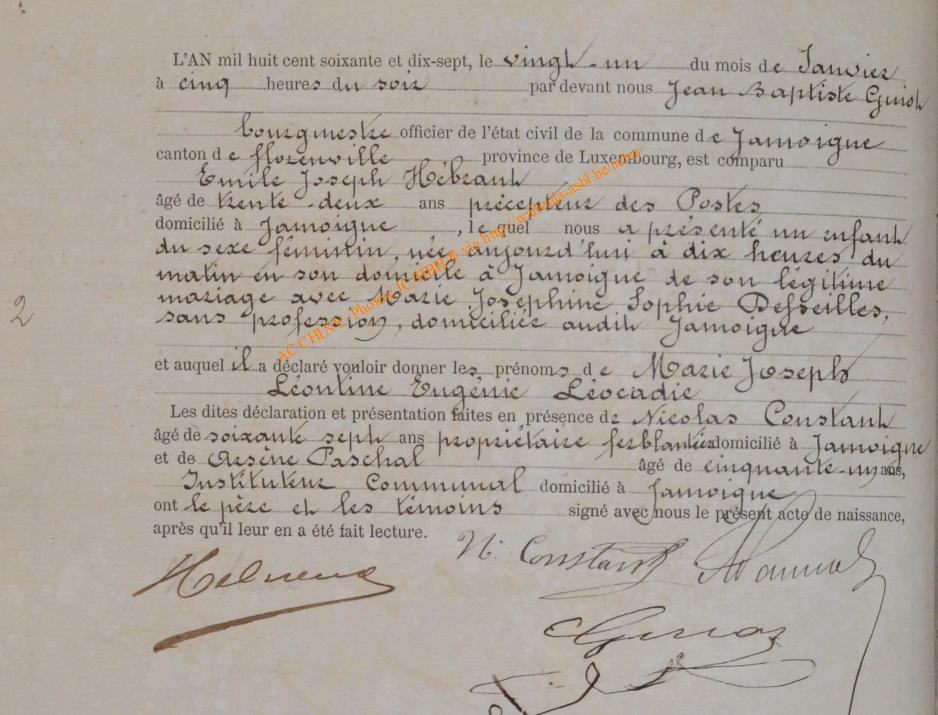 L'AN mil huit cent soixante et dix-sept, le vingt-un du mois de Janvier
à cinq heures du soir par devant nous Jean Baptiste Guiot
bourgmestre officier de l'état civil de la commune de Jamoigne
canton de florenville province de Luxembourg, est comparu
Emile Joseph Hébrant
âgé de trente-deux ans précepteur des Postes
domicilié à Jamoigne, lequel nous a présenté un enfant
du sexe féminin, née aujourd'hui à dix heures du
matin en son domicile à Jamoigne de son légitime
mariage avec Marie Josephine Sophie Desseilles,
sans profession, domiciliée audit Jamoigne
2
et auquel il a déclaré vouloir donner les prénoms de Marie Joseph
Léontine Eugénie Léocadie
Les dites déclaration et présentation faites en présence de Nicolas Constant
âgé de soixante sept ans propriétaire ferblantier domicilié à Jamoigne
et de Arsène Paschal âgé de cinquante-un ans,
Instituteur Communal domicilié à Jamoigne
ont le père et les témoins signé avec nous le présent acte de naissance,
après qu'il leur en a été fait lecture.
N. Constant
AC CHINY, Photos